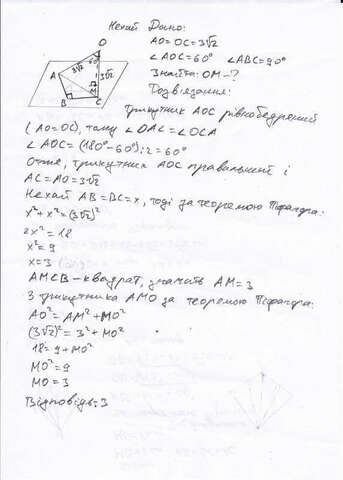 Нехай Дано:
AO=OC=3√2
∠AOC=60° ∠ABC=90°
Знайти: OM-?
Розв'язання:
O
3√2 60° 3√2
A M
B C
Трикутник AOC рівнобедрений
(AO=OC), тому ∠OAC=∠OCA
∠AOC=(180°-60°):2=60°
Отже, трикутник AOC правильний і
AC=AO=3√2
Нехай AB=BC=x, тоді за теоремою Піфагора:
x²+x²=(3√2)²
2x²=18
x²=9
x=3
AMCB-квадрат, значить AM=3
З трикутника AMO за теоремою Піфагора:
AO²=AM²+MO²
(3√2)²=3²+MO²
18=9+MO²
MO²=9
MO=3
Відповідь:3